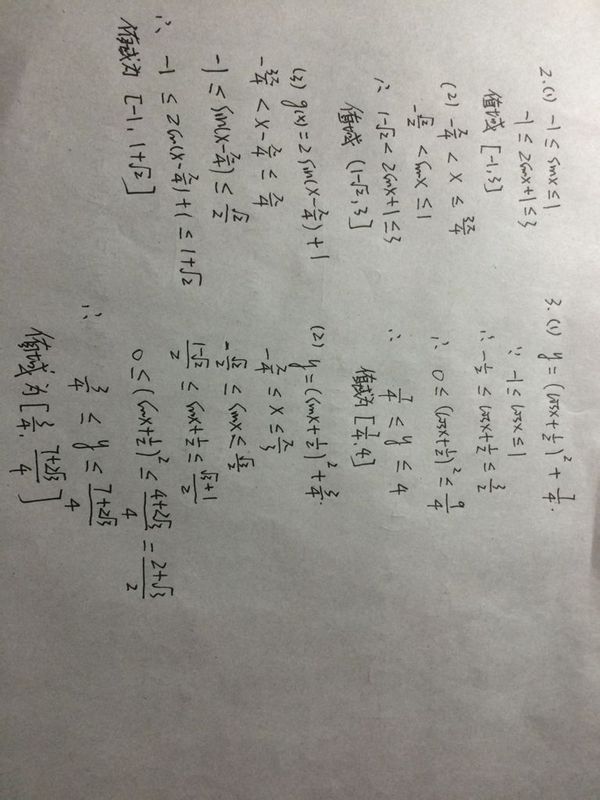 2.(1) -1≤sinx≤1
-1≤2sinx+1≤3
值域 [-1,3]
(2) -π/4 < x ≤ 3π/4
-√2/2 < sinx ≤ 1
∴ 1-√2 < 2sinx+1 ≤ 3
值域 (1-√2, 3]
(3) g(x)=2sin(x-π/4)+1
-3π/4 < x-π/4 ≤ π/4
-1 ≤ sin(x-π/4) ≤ √2/2
∴ -1 ≤ 2sin(x-π/4)+1 ≤ 1+√2
值域为 [-1, 1+√2]
3.(1) y=(cosx+1/2)²+7/4.
∵ -1≤cosx≤1
∴ -1/2≤cosx+1/2≤3/2
∴ 0≤(cosx+1/2)²≤9/4
∴ 7/4≤y≤4
值域为[7/4,4]
(2) y=(sinx+1/2)²+3/4.
-π/4≤x≤π/3
-√2/2≤sinx≤√3/2
(1-√2)/2≤sinx+1/2≤(√3+1)/2
0≤(sinx+1/2)²≤(4+2√3)/4=(2+√3)/2
∴ 3/4≤y≤(7+2√3)/4
值域为[3/4,(7+2√3)/4]